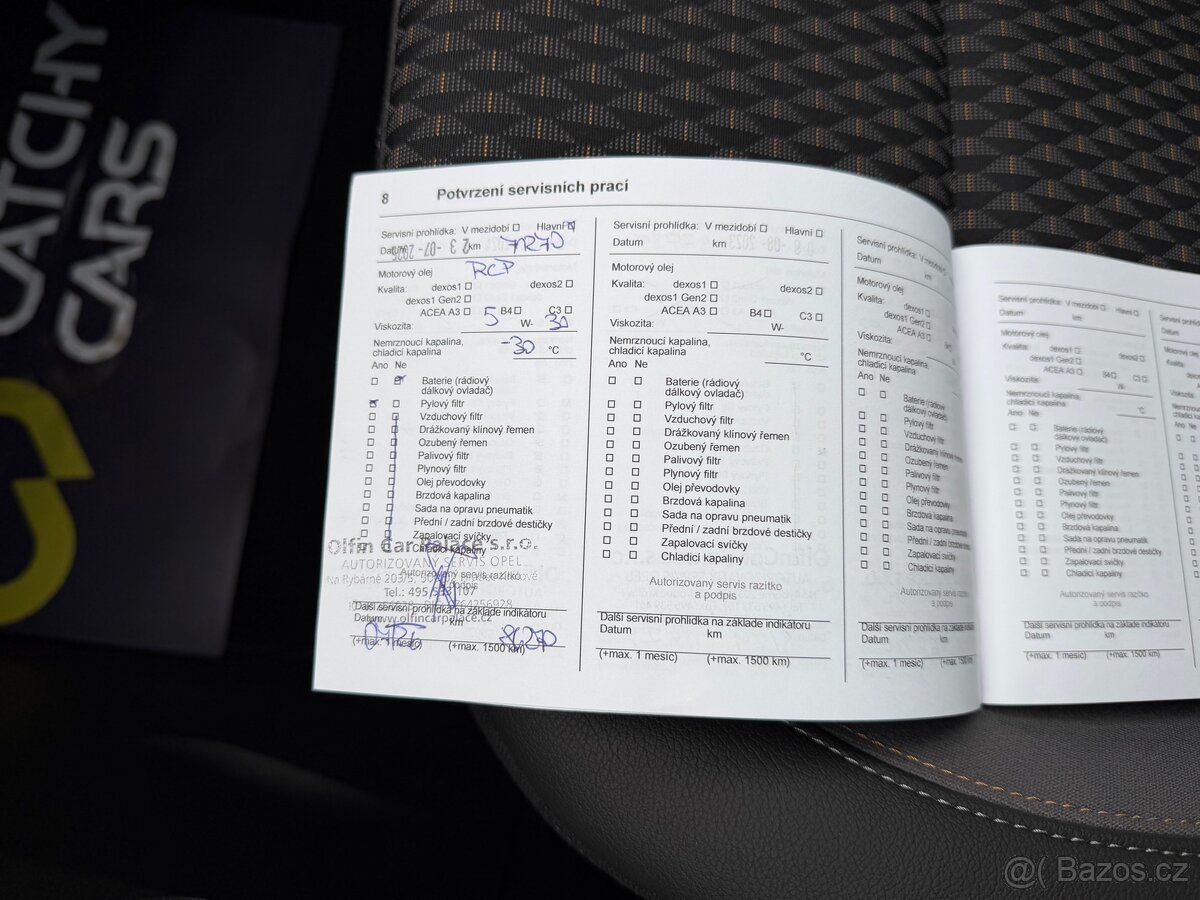 CATCHY
CARS
8 Potvrzení servisních prací
Servisní prohlídka: V mezidobí Hlavní
Datum 23 -07- 2025 km
Motorový olej RCP
Kvalita: dexos1 dexos2
dexos1 Gen2
ACEA A3 B4 C3
Viskozita: 5 W- 30
Nemrznoucí kapalina,
chladicí kapalina -30 °C
Ano Ne
Baterie (rádiový
dálkový ovladač)
Pylový filtr
Vzduchový filtr
Drážkovaný klínový řemen
Ozubený řemen
Palivový filtr
Plynový filtr
Olej převodovky
Brzdová kapalina
Sada na opravu pneumatik
Přední / zadní brzdové destičky
Zapalovací svíčky
Chladicí kapaliny
Olfin Car Palace s.r.o.
AUTORIZOVANÝ SERVIS OPEL
Autorizovaný servis razítko
a podpis
Na Rybárně
Tel.: 495
www.olfincarpalace.cz
Další servisní prohlídka na základě indikátoru
Datum km
(+max. 1 měsíc) (+max. 1500 km)
Servisní prohlídka: V mezidobí Hlavní
Datum km
Motorový olej
Kvalita: dexos1 dexos2
dexos1 Gen2
ACEA A3 B4 C3
Viskozita: W-
Nemrznoucí kapalina,
chladicí kapalina °C
Ano Ne
Baterie (rádiový
dálkový ovladač)
Pylový filtr
Vzduchový filtr
Drážkovaný klínový řemen
Ozubený řemen
Palivový filtr
Plynový filtr
Olej převodovky
Brzdová kapalina
Sada na opravu pneumatik
Přední / zadní brzdové destičky
Zapalovací svíčky
Chladicí kapaliny
Autorizovaný servis razítko
a podpis
Další servisní prohlídka na základě indikátoru
Datum km
(+max. 1 měsíc) (+max. 1500 km)
Servisní prohlídka: V mezidobí
Datum km
Motorový olej
Kvalita: dexos1
dexos1 Gen2
ACEA A3
Viskozita:
Nemrznoucí kapalina,
chladicí kapalina
Ano Ne
Baterie (rádiový
dálkový ovladač)
Pylový filtr
Vzduchový filtr
Drážkovaný klínový
Ozubený řemen
Palivový filtr
Plynový filtr
Olej převodovky
Brzdová kapalina
Sada na opravu
Přední / zadní
Zapalovací svíčky
Chladicí kapaliny
Autorizovaný servis
a podpis
Další servisní prohlídka na základě
Datum km
(+max. 1 měsíc) (+max. 1500
Servisní prohlídka: V mezidobí Hlavní
Datum km
Motorový olej
Kvalita: dexos1 dexos2
dexos1 Gen2
ACEA A3 B4 C3
Viskozita: W-
Nemrznoucí kapalina,
chladicí kapalina °C
Ano Ne
Baterie (rádiový
dálkový ovladač)
Pylový filtr
Vzduchový filtr
Drážkovaný klínový řemen
Ozubený řemen
Palivový filtr
Plynový filtr
Olej převodovky
Brzdová kapalina
Sada na opravu pneumatik
Přední / zadní brzdové destičky
Zapalovací svíčky
Chladicí kapaliny
Autorizovaný servis razítko
a podpis
Další servisní prohlídka na základě indikátoru
Datum km
(+max. 1 měsíc) (+max. 1500 km)
@( Bazos.cz